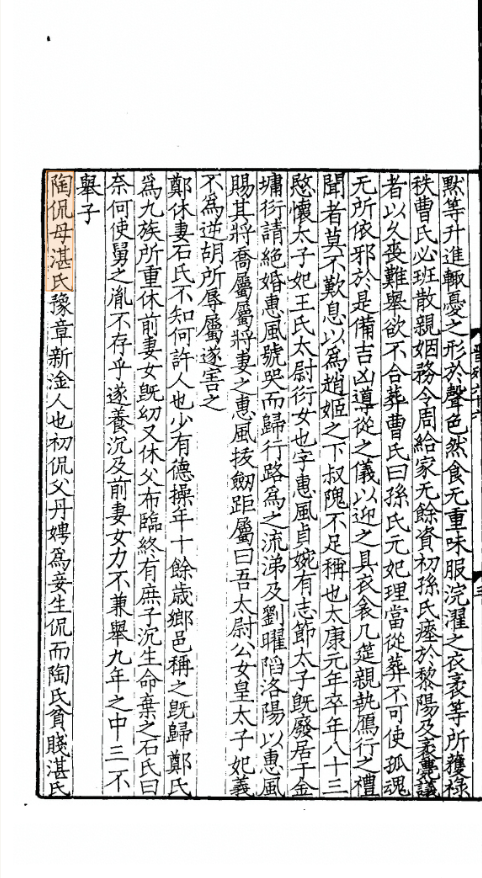 黙等升進輙憂之形於聲色然食无重味服浣濯之衣袤等所獲祿
秩曹氏必班散親姻務令周給家无餘資初孫氏瘞於黎陽及袤薨議
者以久喪難舉欲不合葬曹氏曰孫氏元妃理當從葬不可使孤魂
无所依邪於是備吉凶導從之儀以迎之具衣衾几筵親執鴈行之禮
聞者莫不歎息以爲趙姬之下叔隗不足稱也太康元年卒年八十三
愍懷太子妃王氏太尉衍女也字惠風貞婉有志節太子旣廢居于金
墉衍請絕婚惠風號哭而歸行路爲之流涕及劉曜陷洛陽以惠風
賜其將喬屬屬將妻之惠風拔劒距屬曰吾太尉公女皇太子妃義
不爲逆胡所辱屬遂害之
鄭休妻石氏不知何許人也少有德操年十餘歲鄉邑稱之旣歸鄭氏
爲九族所重休前妻女旣幼又休父布臨終有庶子沉生命棄之石氏曰
奈何使舅之胤不存乎遂養沉及前妻女力不兼舉九年之中三不
舉子
陶侃母湛氏豫章新淦人也初侃父丹娉爲妾生侃而陶氏貧賤湛氏